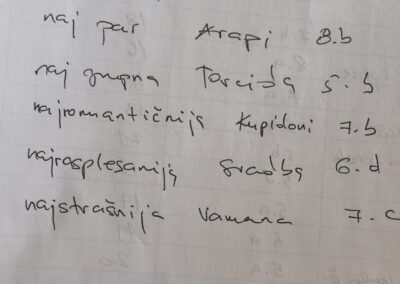 naj par Arapi 8.b
naj grupna Torcida 5.b
najromantičnija Kupidoni 7.b
najrasplesanija svadba 6.d
najstrašnija Vamana 7.c